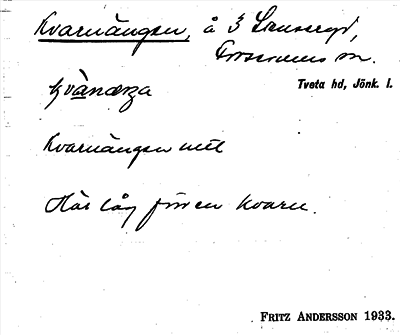 Kvarnängen, å 3 Lrusseryd,
Forserums sn.
Tveta hd, Jönk. l.
kvànæŋa
Kvarnängen mtl
Här låg förr en kvarn.
Fritz Andersson 1933.